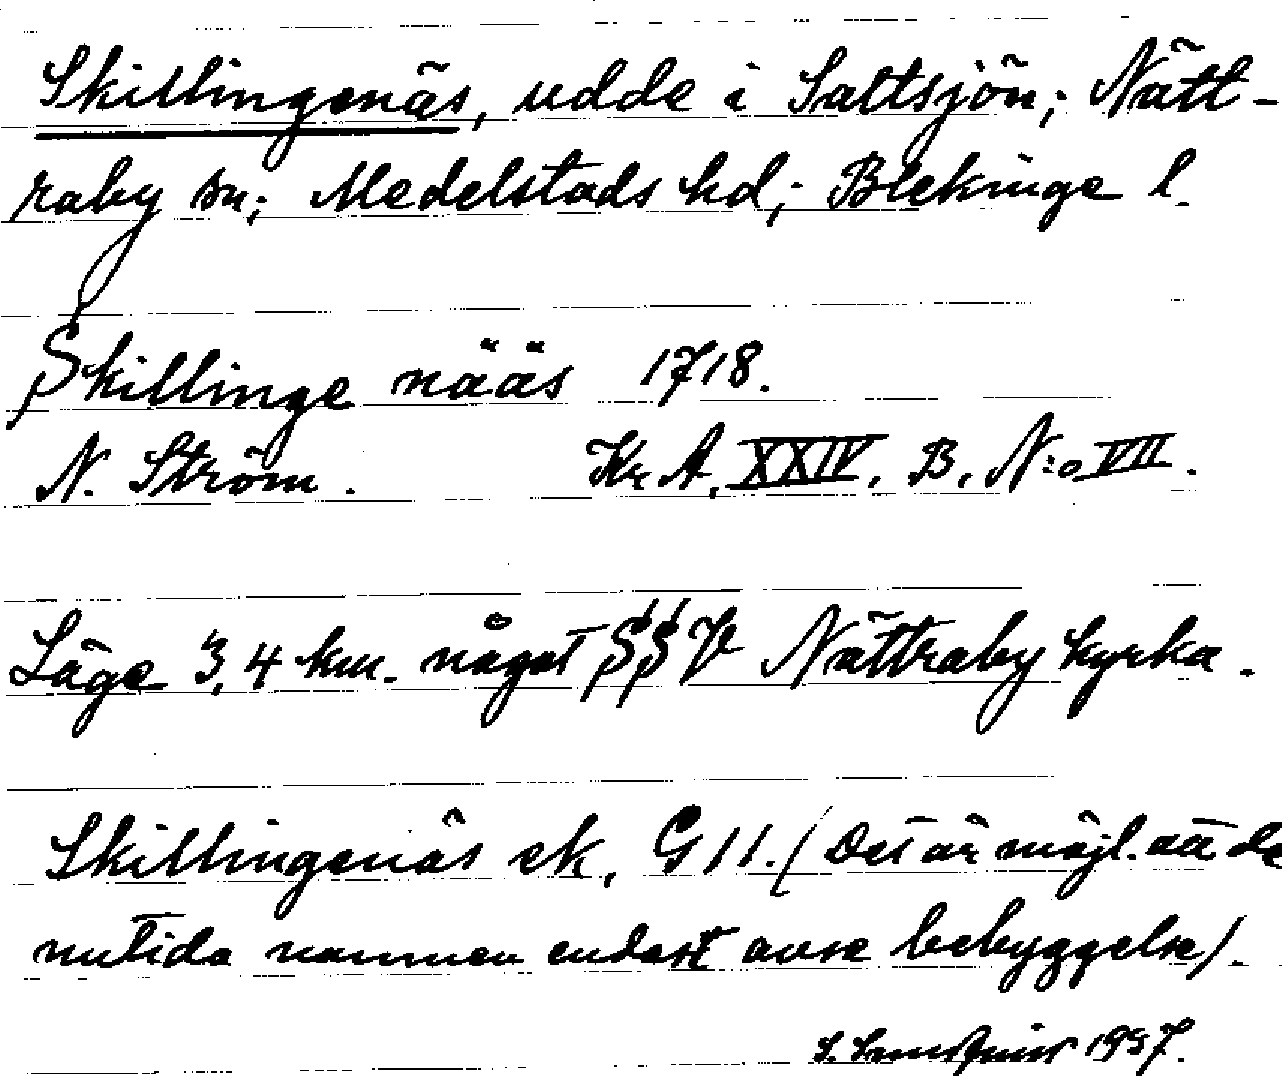 Skillingenäs, udde i Saltsjön; Nätt-
raby sn; Medelstads hd; Blekinge l.
Skillinge nääs 1718.
N. Ström. Kr A, XXIV. B, N:o VII.
Läge 3,4 km. något SSV Nättraby kyrka.
Skillingenäs ek, G 11. (Det är möjl. att de
nutida namnen endast avse bebyggelse).
1957.